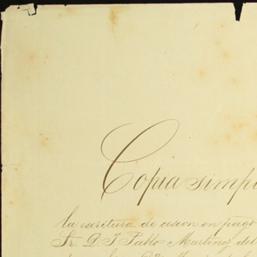 Copia simp
la escritura de cesion en pago
Sr. D. J. Pablo Martinez del